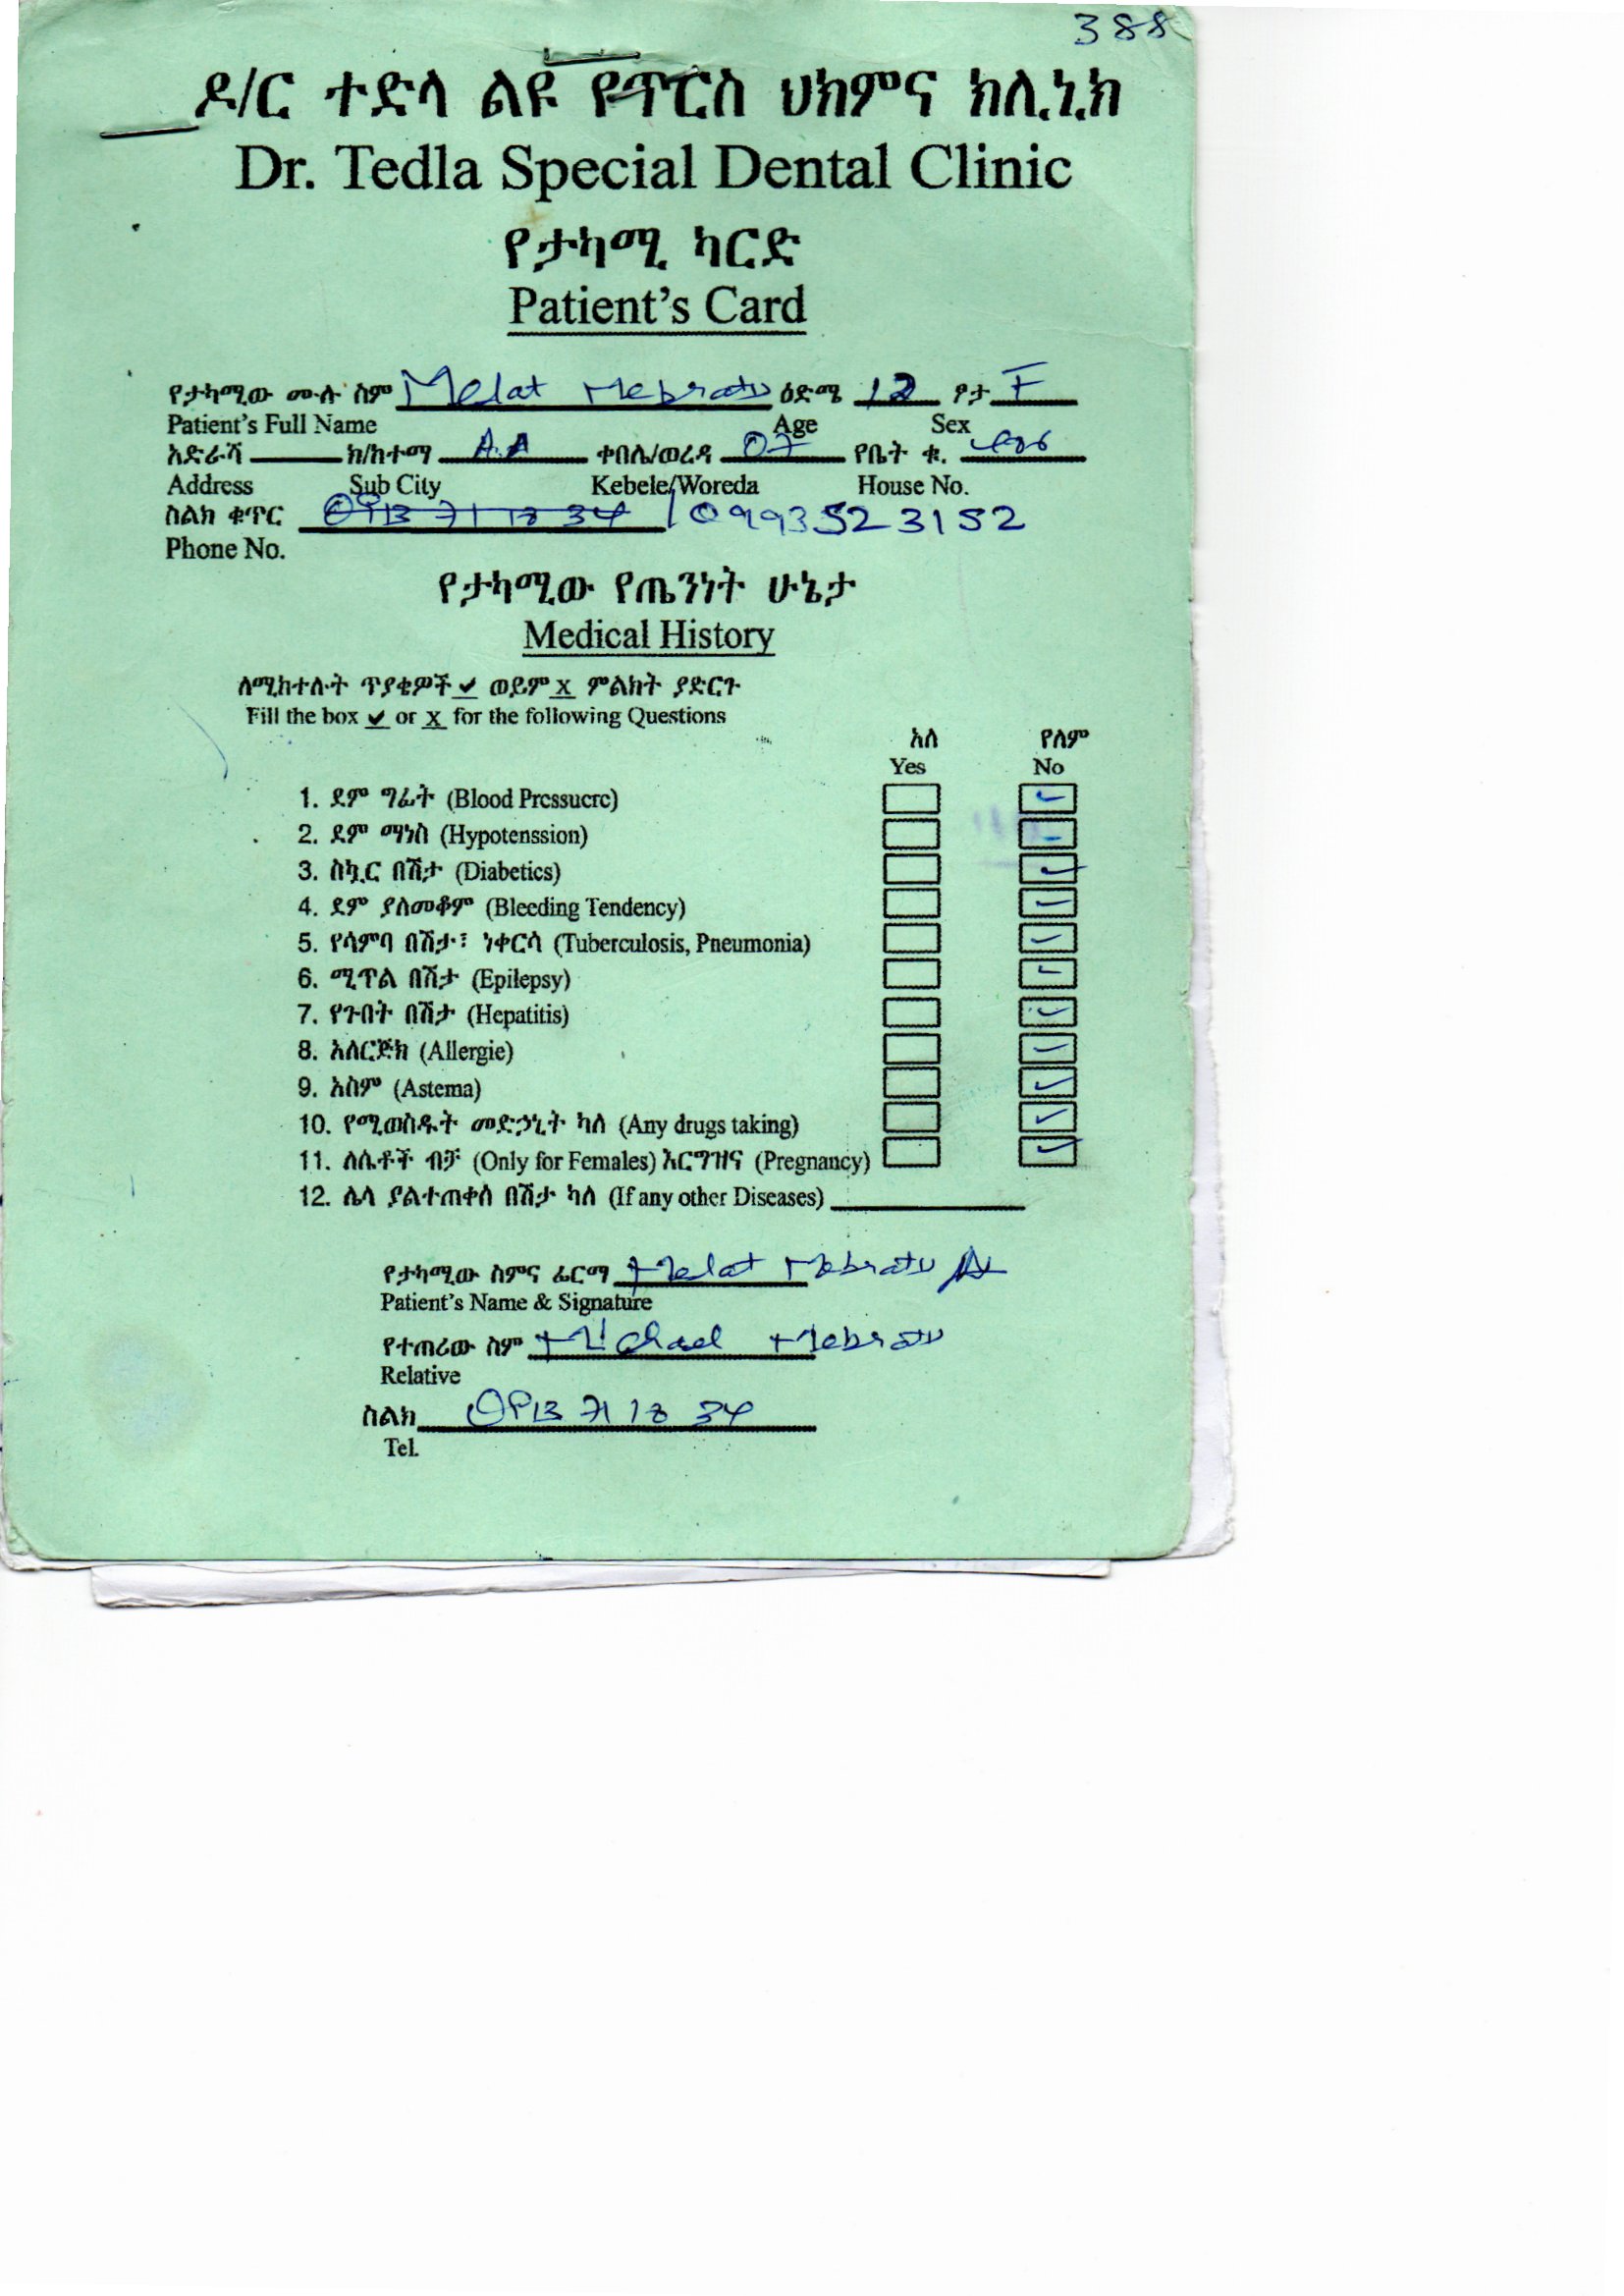 388
ዶ/ር ተድላ ልዩ የጥርስ ህክምና ክሊኒክ
Dr. Tedla Special Dental Clinic
የታካሚ ካርድ
Patient's Card
የታካሚው ሙሉ ስም Melat Mebratu ዕድሜ 12 ፆታ F
Patient's Full Name Age Sex
አድራሻ ክ/ከተማ A.A ቀበሌ/ወረዳ 07 የቤት ቁ.
Address Sub City Kebele/Woreda House No.
ስልክ ቁጥር 0913 71 18 34 / 0993523152
Phone No.
የታካሚው የጤንነት ሁኔታ
Medical History
ለሚከተሉት ጥያቄዎች ✓ ወይም x ምልክት ያድርጉ
Fill the box ✓ or x for the following Questions
አለ የለም
Yes No
1. ደም ግፊት (Blood Pressuere) ✓
2. ደም ማነስ (Hypotenssion) -
3. ስኳር በሽታ (Diabetics) ✓
4. ደም ያለመቆም (Bleeding Tendency) ✓
5. የሳምባ በሽታ፣ ነቀርሳ (Tuberculosis, Pneumonia) ✓
6. ሚጥል በሽታ (Epilepsy) ✓
7. የጉበት በሽታ (Hepatitis) ✓
8. አለርጅክ (Allergie) ✓
9. አስም (Astema) ✓
10. የሚወስዱት መድኃኒት ካለ (Any drugs taking) ✓
11. ለሴቶች ብቻ (Only for Females) እርግዝና (Pregnancy) ✓
12. ሌላ ያልተጠቀሰ በሽታ ካለ (If any other Diseases)
የታካሚው ስምና ፊርማ Melat Mebratu
Patient's Name & Signature
የተጠሪው ስም Michael Mebratu
Relative
ስልክ 0913 71 18 34
Tel.